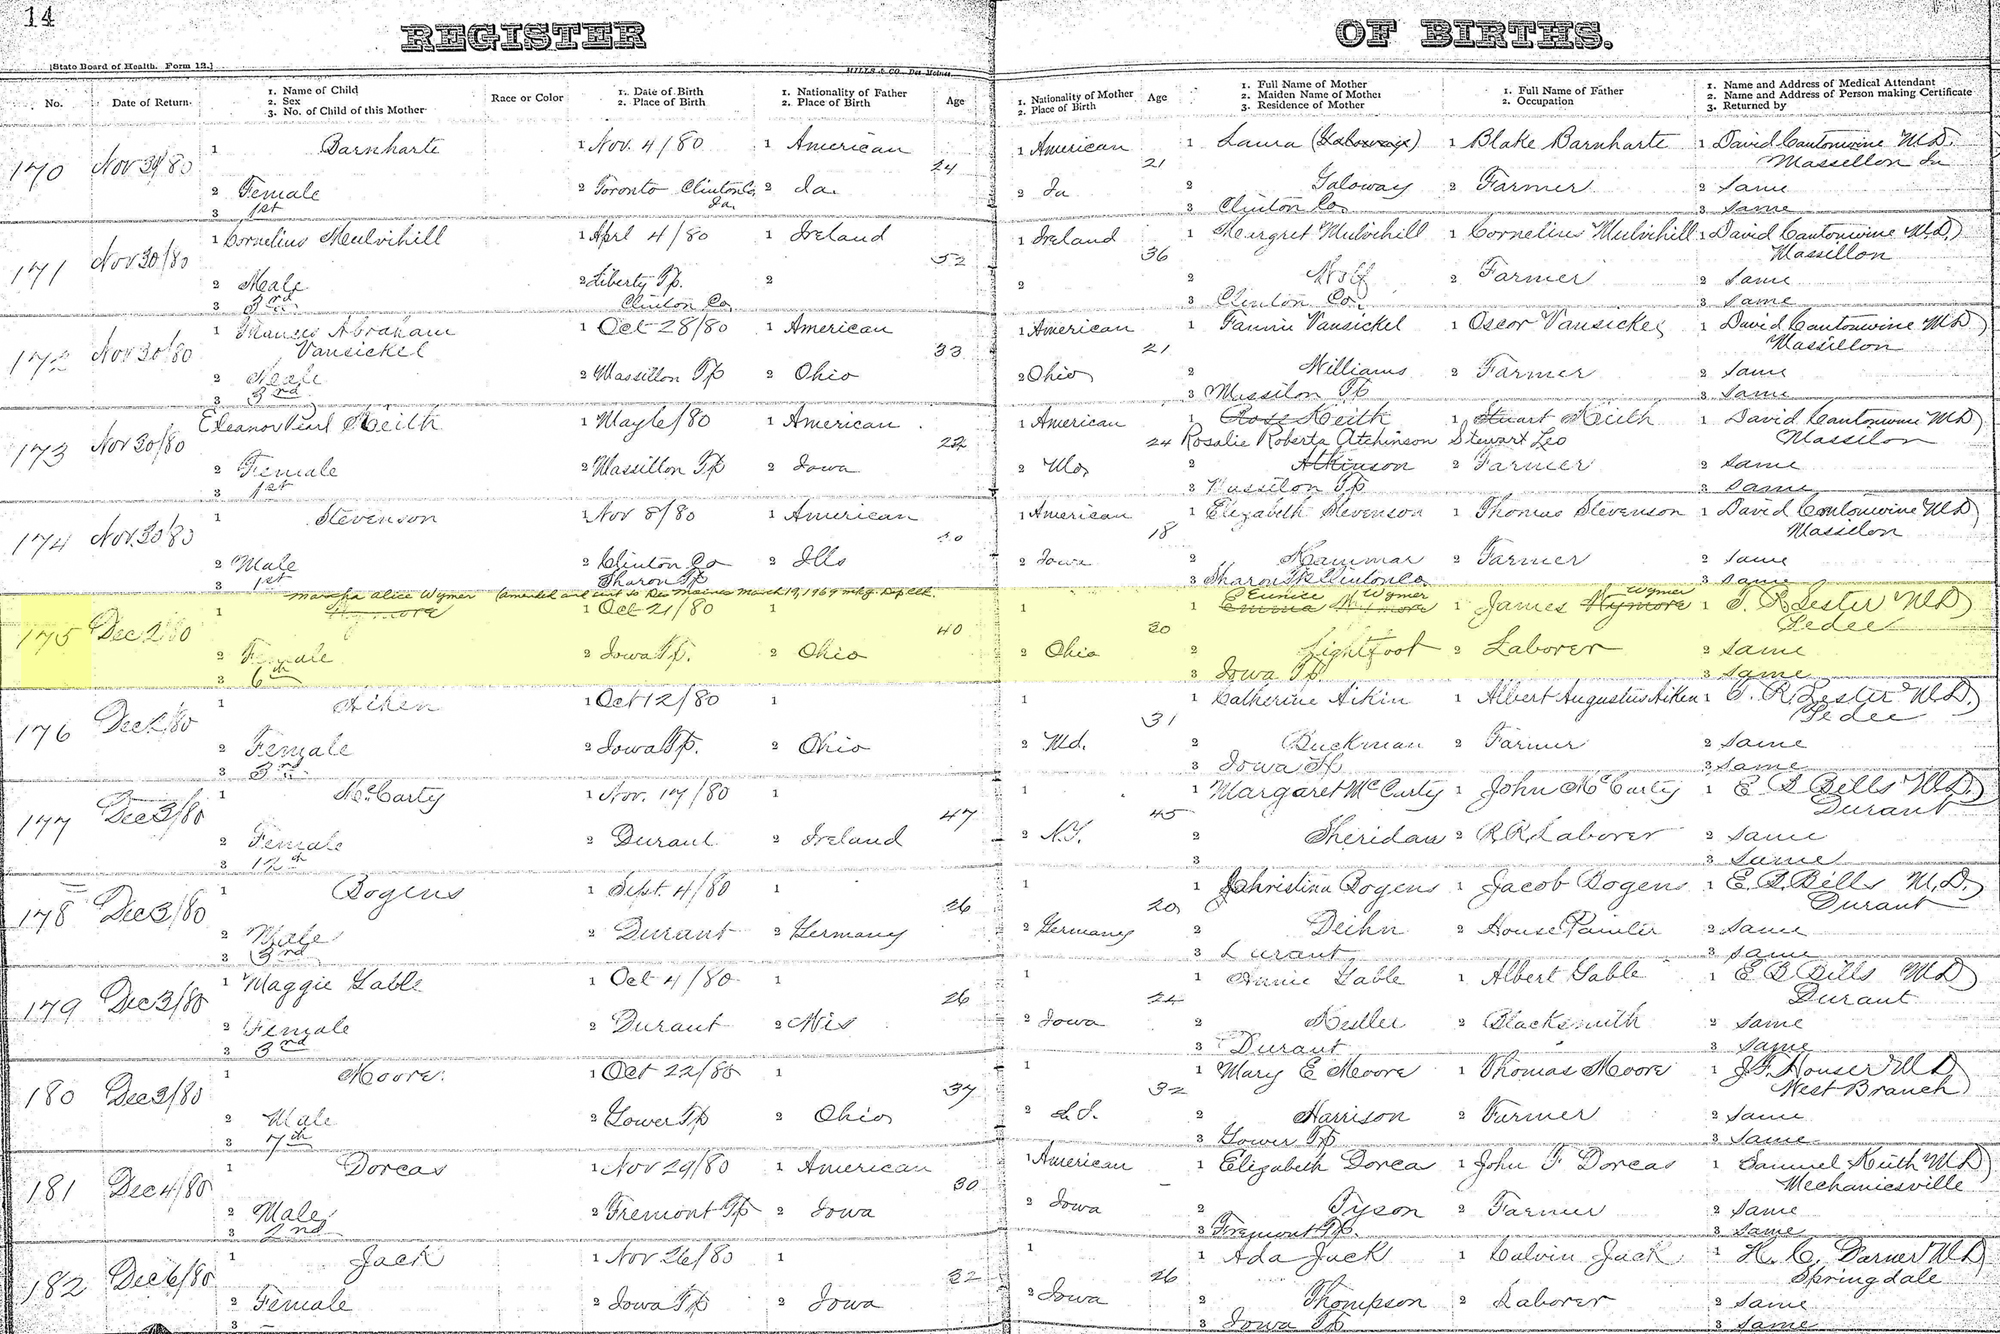 14
REGISTER OF BIRTHS.
[State Board of Health. Form 12.]
MILLS & CO., Des Moines
No.
Date of Return
1. Name of Child
2. Sex
3. No. of Child of this Mother
Race or Color
1. Date of Birth
2. Place of Birth
1. Nationality of Father
2. Place of Birth
Age
1. Nationality of Mother
2. Place of Birth
Age
1. Full Name of Mother
2. Maiden Name of Mother
3. Residence of Mother
1. Full Name of Father
2. Occupation
1. Name and Address of Medical Attendant
2. Name and Address of Person making Certificate
3. Returned by
170 Nov 30/80 1 Barnharte 1 Nov. 4/80 1 American 24 1 American 21 1 Laura 1 Blake Barnharte 1 David Cantonwine M.D.
Massellon Ia
2 Female 2 Toronto Clinton Co 2 Ia. 2 Ia 2 Galoway 2 Farmer 2 Same
Ia.
3 1st 3 Clinton Co 3 Same
171 Nov 30/80 1 Cornelius Mulvihill 1 Aprl 4/80 1 Ireland 52 1 Ireland 36 1 Margret Mulvihill 1 Cornelius Mulvihill 1 David Cantonwine M.D.
Massillon
2 Male 2 Liberty Tp. 2 2 2 2 Farmer 2 Same
Clinton Co.
3 3rd 3 Clinton Co. 3 Same
172 Nov 30/80 1 Abraham 1 Oct 28/80 1 American 33 1 American 21 1 Fannie Vansickel 1 Oscor Vansickel 1 David Cantonwine M.D.
Vansickel Massillon
2 Male 2 Massillon Tp 2 Ohio 2 Ohio 2 Williams 2 Farmer 2 Same
3 3rd 3 Massilon Tp 3 Same
173 Nov 30/80 Eleanor Pearl Keith 1 May 6/80 1 American 22 1 American 24 1 Rose Keith 1 Stuart Keith 1 David Cantonwine M.D.
Rosalie Roberta Atchinson Stewart Leo Massilon
2 Female 2 Massillon Tp 2 Iowa 2 Mo 2 Atkinson 2 Farmer 2 Same
3 1st 3 Massilon Tp 3 Same
174 Nov. 30/80 1 Stevenson 1 Nov 8/80 1 American 1 American 18 1 Elizabeth Stevenson 1 Thomas Stevenson 1 David Cantonwine M.D.
Massilon
2 Male 2 Clinton Co 2 Ills 2 Iowa 2 Hammar 2 Farmer 2 Same
Sharon Tp
3 1st 3 Sharon Tp Clinton Co. 3 Same
Marsha Alice Wymer (amended and sent to Des Moines March 19, 1969
Eunice Wymer Wymer
175 Dec 2/80 1 Wymore 1 Oct 21/80 1 40 1 30 1 Emma Wymore 1 James Wymore 1 T. R. Lester M.D.
Pedee
2 Female 2 Iowa Tp. 2 Ohio 2 Ohio 2 Lightfoot 2 Laborer 2 Same
3 6th 3 Iowa Tp. 3 Same
176 Dec 2/80 1 Aiken 1 Oct 12/80 1 1 31 1 Catherine Aikin 1 Albert Augustus Aiken 1 T. R. Lester M.D.
Pedee
2 Female 2 Iowa Tp. 2 Ohio 2 Md. 2 Buckman 2 Farmer 2 Same
3 3rd 3 Iowa Tp 3 Same
177 Dec 3/80 1 McCarty 1 Nov. 17/80 1 47 1 45 1 Margaret McCurty 1 John McCurty 1 E B Bills M.D.
Durant
2 Female 2 Durant 2 Ireland 2 N.Y. 2 Sheridan 2 R.R. Laborer 2 Same
3 12th 3 3 Same
178 Dec 3/80 1 Bogens 1 Sept. 4/80 1 26 1 20 1 Christina Bogens 1 Jacob Bogens 1 E. B. Bills M.D.
Durant
2 Male 2 Durant 2 Germany 2 Germany 2 Deihn 2 House Painter 2 Same
3 3rd 3 Durant 3 Same
179 Dec 3/80 1 Maggie Gable 1 Oct 4/80 1 26 1 24 1 Annie Gable 1 Albert Gable 1 E B Bills M.D.
Durant
2 Female 2 Durant 2 Wis 2 Iowa 2 2 Blacksmith 2 Same
3 3rd 3 Durant 3 Same
180 Dec 3/80 1 Moore 1 Oct 22/80 1 37 1 32 1 Mary E Moore 1 Thomas Moore 1 J. F. Houser M.D.
West Branch
2 Male 2 Gower Tp 2 Ohio 2 2 Harrison 2 Farmer 2 Same
3 7th 3 Gower Tp 3 Same
181 Dec 4/80 1 Dorcas 1 Nov 29/80 1 American 30 1 American 1 Elizabeth Dorca 1 John F Dorcas 1 Samuel Keith M.D.
Mechanicsville
2 Male 2 Fremont Tp 2 Iowa 2 Iowa 2 Tyson 2 Farmer 2 Same
3 2nd 3 Fremont Tp. 3 Same
182 Dec 6/80 1 Jack 1 Nov 26/80 1 32 1 26 1 Ada Jack 1 Calvin Jack 1 H. C. Darner M.D.
Springdale
2 Female 2 Iowa Tp 2 Iowa 2 Iowa 2 Thompson 2 Laborer 2 Same
3 3 Iowa Tp 3 Same